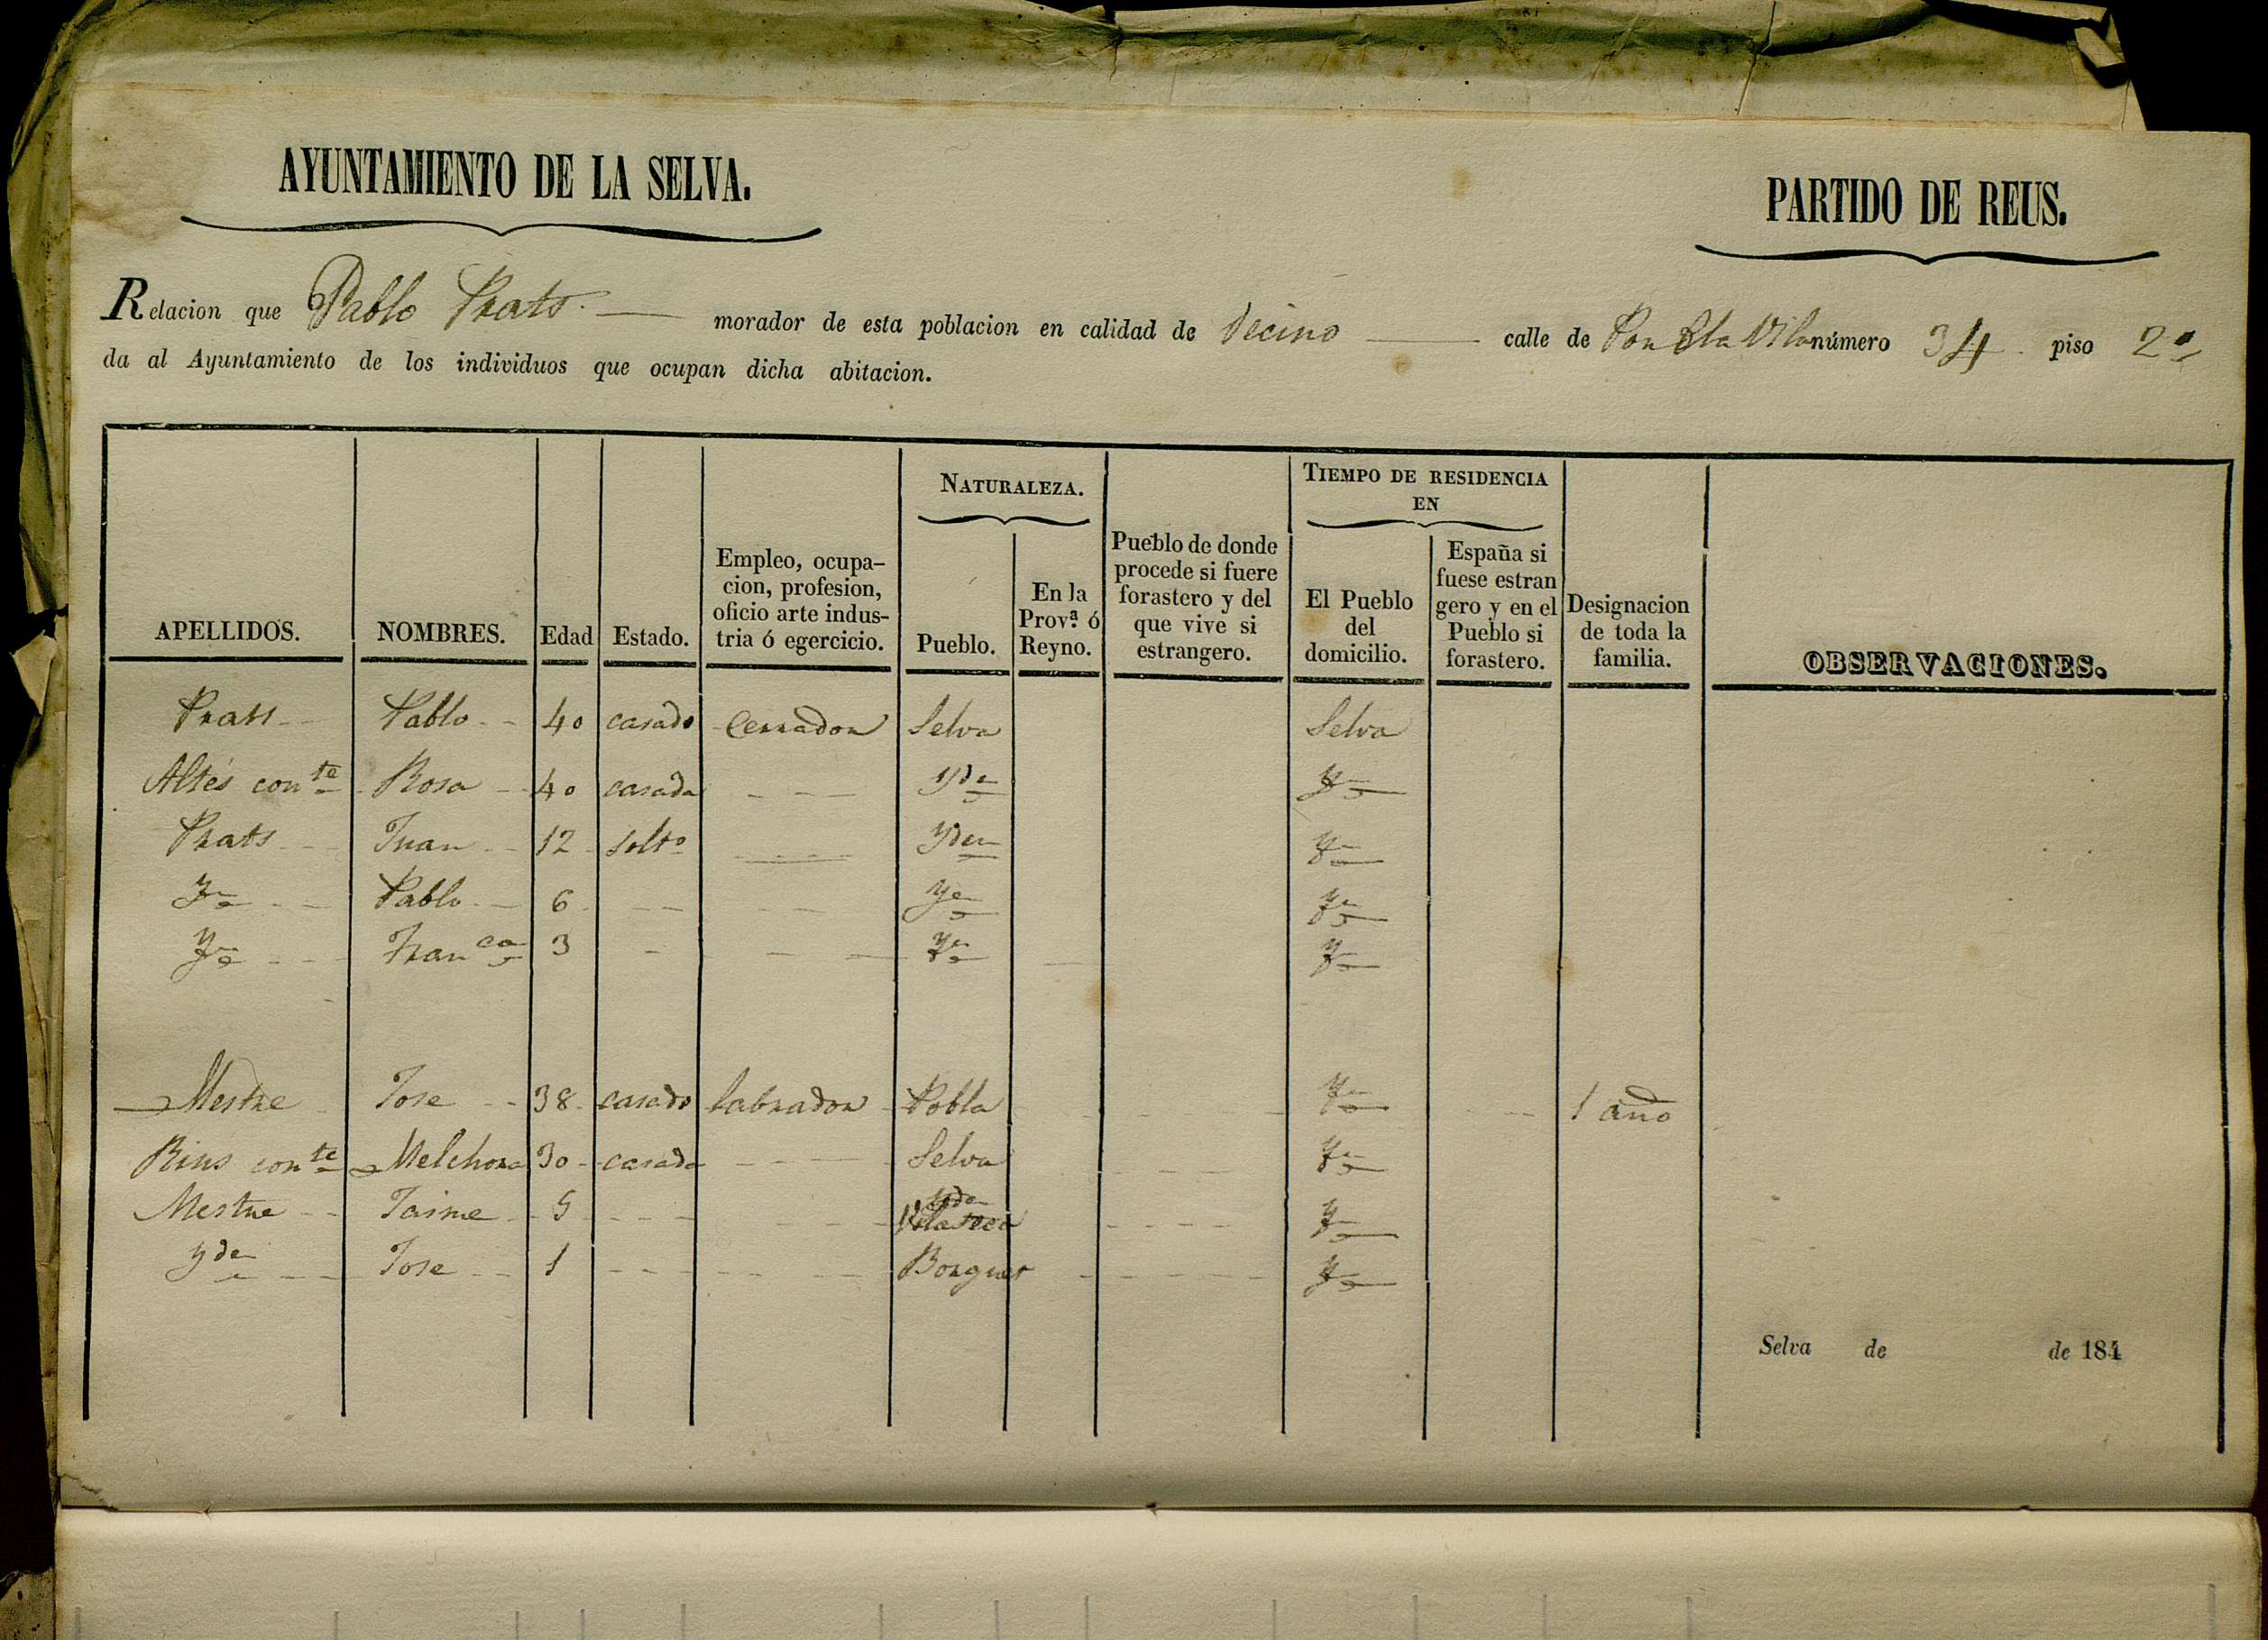 AYUNTAMIENTO DE LA SELVA.
PARTIDO DE REUS.
Relacion que Pablo Prats morador de esta poblacion en calidad de Vecino calle de Vila número 34 piso 2º
da al Ayuntamiento de los individuos que ocupan dicha abitacion.
NATURALEZA.
TIEMPO DE RESIDENCIA
EN
APELLIDOS.
NOMBRES.
Edad
Estado.
Empleo, ocupa-
cion, profesion,
oficio arte indus-
tria ó egercicio.
Pueblo.
En la
Prov.ª ó
Reyno.
Pueblo de donde
procede si fuere
forastero y del
que vive si
estrangero.
El Pueblo
del
domicilio.
España si
fuese estran
gero y en el
Pueblo si
forastero.
Designacion
de toda la
familia.
OBSERVACIONES.
Prats Pablo 40 casado Cerrador Selva Selva
Altés conte Rosa 40 casada Yde Ye
Prats Juan 12 solto Yden Ye
Ye Pablo 6 Ye Ye
Ye Franca 3 Ye Ye
Mestre Jose 38 casado labrador Pobla Ye 1 año
Rius conte Melchora 30 casada Selva Ye
Mestre Jaime 5 Yde Ye
Yde Jose 1 Borguet Ye
Selva de de 184